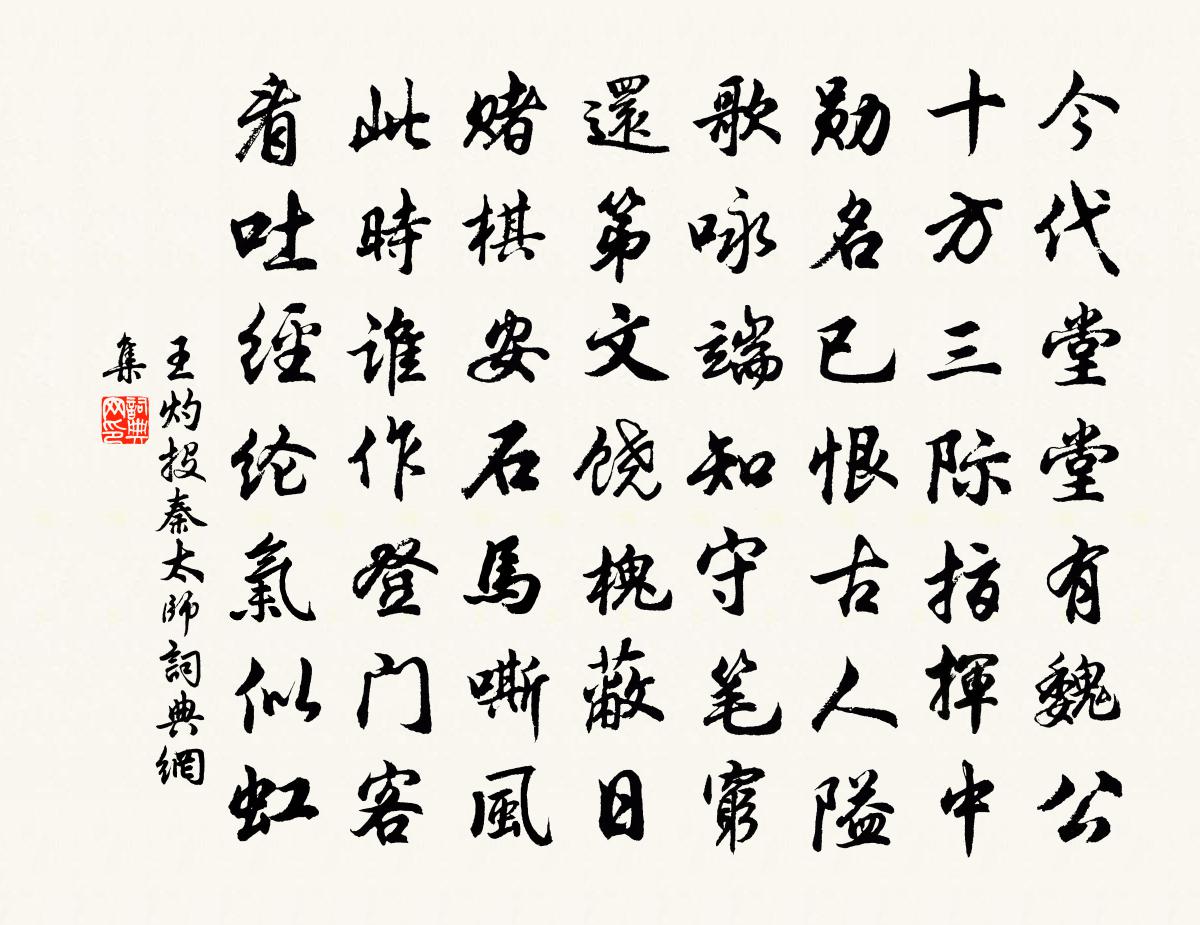 今代堂堂有魏公
十方三际指揮中
勋名已恨古人隘
歌咏端知守笔窮
還第文饶槐蔽日
赌棋安石馬嘶風
此時谁作登门客
看吐經纶氣似虹
王灼投秦太師詞典網
集
詞典
网印